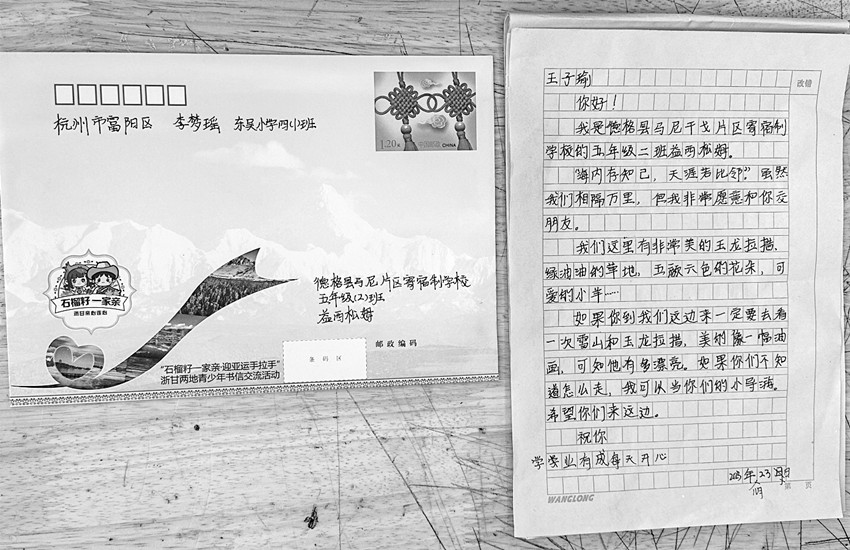 杭州市富阳区 李梦瑶 东吴小学四(1)班
1.20元
中国邮政
CHINA
石榴籽一家亲
浙甘来心连心
德格县马尼片区寄宿制学校
五年级(2)班
益西松姆
邮政编码
条码区
“石榴籽一家亲·迎亚运手拉手”
浙甘两地青少年书信交流活动
王子瑜
改错
你好！
我是德格县马尼干戈片区寄宿制
学校的五年级二班益西松姆。
“海内存知己，天涯若比邻”虽然
我们相隔万里，但我非常愿意和你交
朋友。
我们这里有非常美的玉龙拉措、
绿油油的草地，五颜六色的花朵，可
爱的小羊……
如果你到我们这边来一定要去看
一次雪山和玉龙拉措，美的像一幅油
画，可知他有多漂亮。如果你们不知
道怎么走，我可以当你们的小导游。
希望你们来这边。
祝你
学业有成每天开心
第 页
WANGLONG